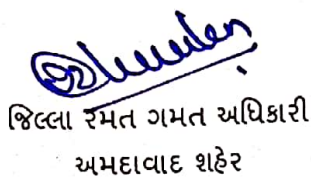 જિલ્લા રમત ગમત અધિકારી
અમદાવાદ શહેર